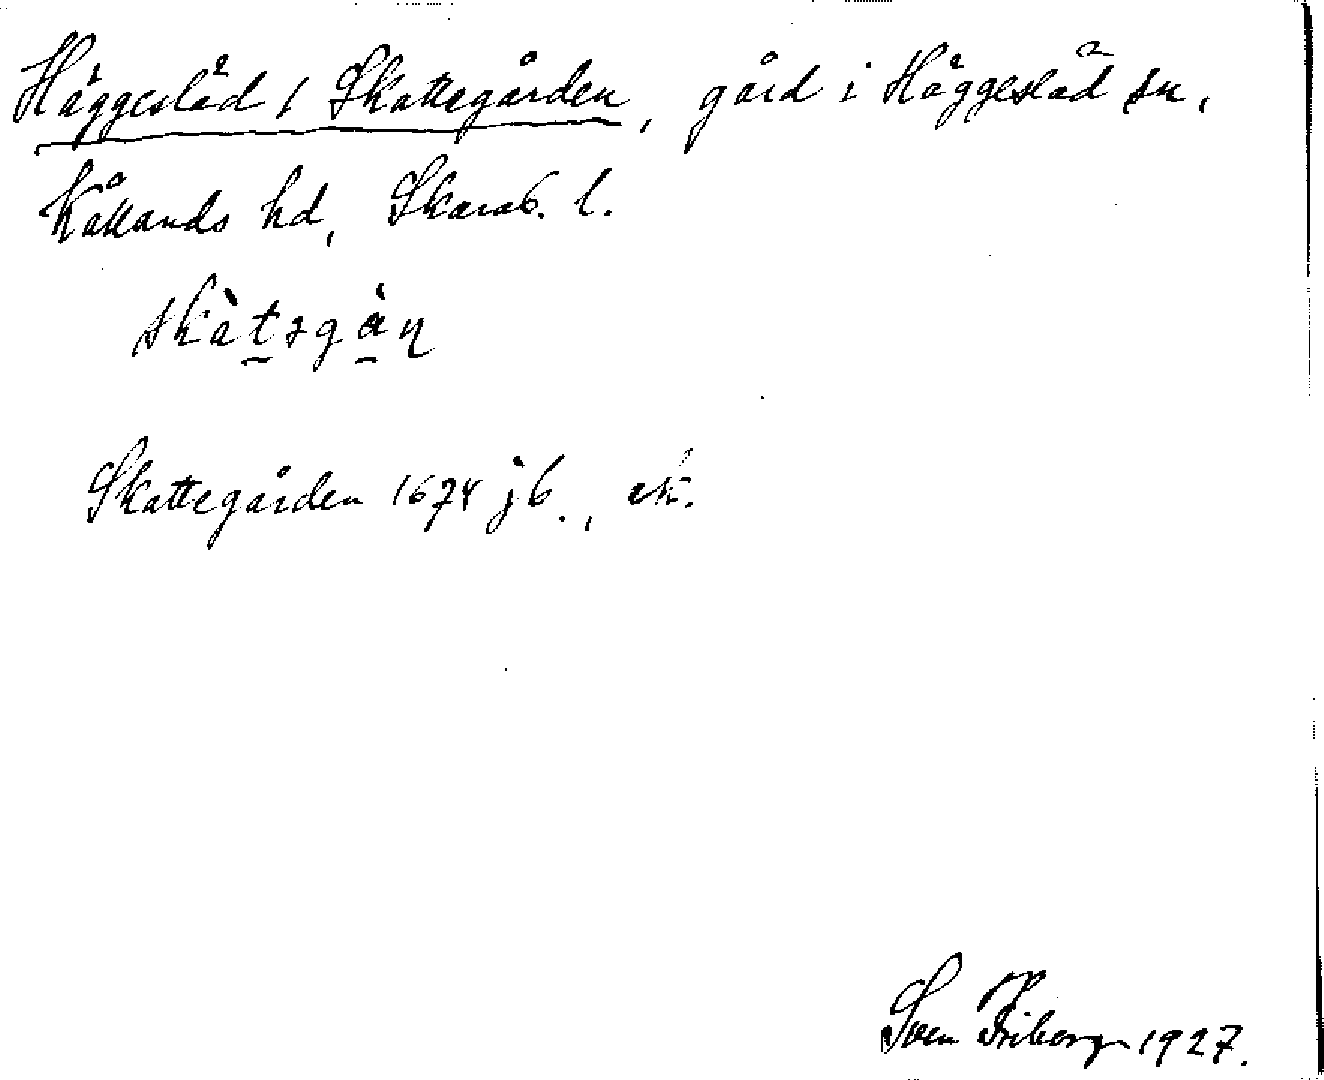 Häggesläd / Skattegården, gård i Häggesläd sn,
Kållands hd, Skarab. l.
skàtsgàn
Skattegården 1674 jb., ek.
Sven Friberg 1927.